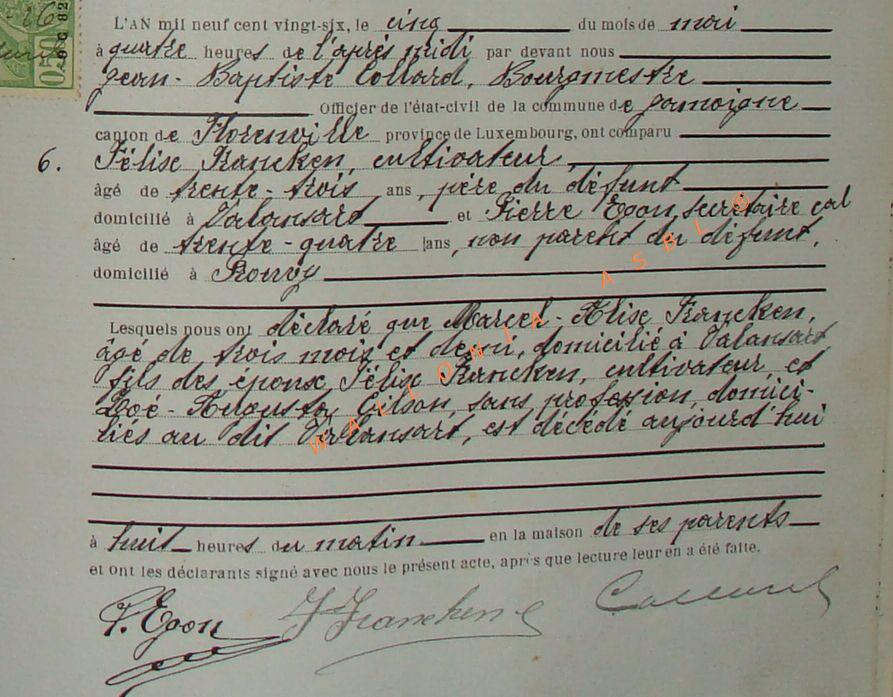 26
0.50
L'AN mil neuf cent vingt-six, le cinq du mois de mai
à quatre heures de l'après midi par devant nous
Jean-Baptiste Collard, Bourgmestre
Officier de l'état-civil de la commune de Jamoigne
canton de Florenville province de Luxembourg, ont comparu
6. Félise Francken, cultivateur
âgé de trente-trois ans, père du défunt
domicilié à Valansart et Pierre Egon, secrétaire cal
âgé de trente-quatre ans, non parent du défunt,
domicilié à Rouvy
Lesquels nous ont déclaré que Marcel-Elise Francken,
âgé de trois mois et demi, domicilié à Valansart,
fils des épouse Félise Francken, cultivateur, et
Zoé-Augusta Gilson, sans profession, domici-
liés au dit Valansart, est décédé aujourd'hui
à huit heures du matin en la maison de ses parents
et ont les déclarants signé avec nous le présent acte, après que lecture leur en a été faite.
P. Egon J Francken Collard
WALLONIA ASBL ©